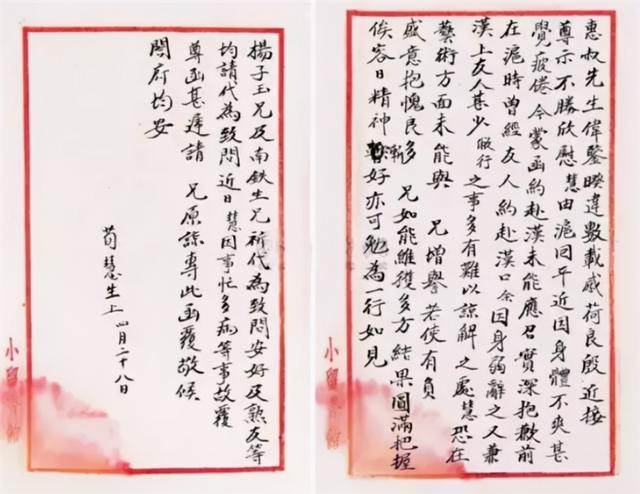 惠叔先生偉鑒暌違數載感荷良殷近接
尊示不勝欣慰慧由滬回平近因身體不爽甚
覺疲倦今蒙函約赴漢未能應召實深抱歉前
在滬時曾經友人約赴漢口余因身弱辭之又兼
漢上友人甚少 此行之事多有難以諒解之處慧恐在
藝術方面未能與 兄增譽若使有負
盛意抱愧良多 兄如能維穫多方結果圓滿把握
俟容日精神漸好亦可勉為一行如見
楊子玉兄及南鉄生兄祈代為致問安好及熟友等
均請代為致問近日慧因事忙多病等事故覆
尊函甚遲請 兄原諒專此函覆敬候
閤府均安
荀慧生上 四月二十八日
小留香館
小留香館